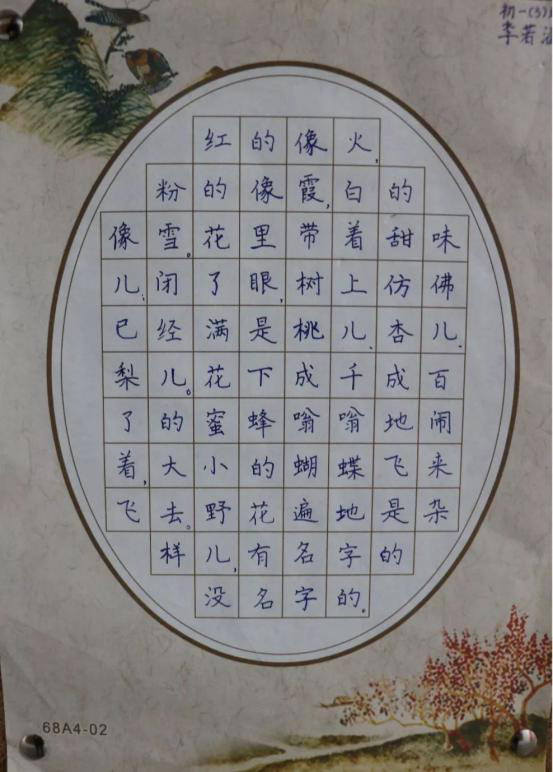 初一(3)
李若
红的像火,
粉的像霞,白的
像雪。花里带着甜味
儿;闭了眼,树上仿佛
已经满是桃儿、杏儿、
梨儿。花下成千成百
了的蜜蜂嗡嗡地闹
着,大小的蝴蝶飞来
飞去。野花遍地是杂
样儿,有名字的
没名字的。
68A4-02